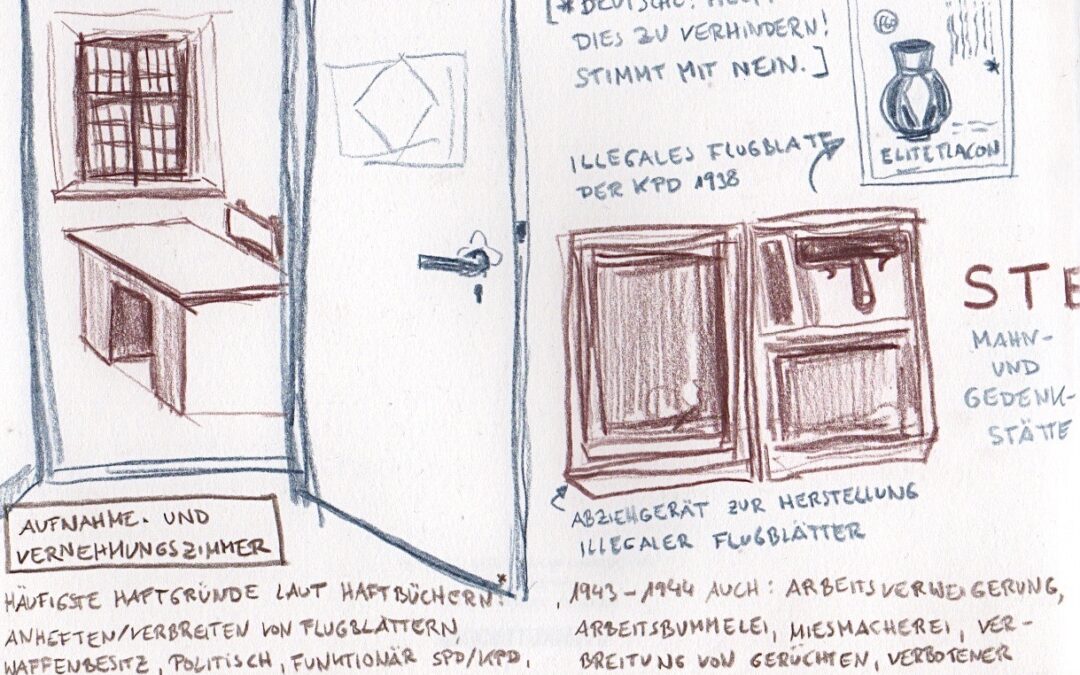 [* DEUTSCHE! HELFT
DIES ZU VERHINDERN!
STIMMT MIT NEIN.]
ELITEFLACON
ILLEGALES FLUGBLATT
DER KPD 1938
STE
MAHN-
UND
GEDENK-
STÄTTE
ABZIEHGERÄT ZUR HERSTELLUNG
ILLEGALER FLUGBLÄTTER
AUFNAHME- UND
VERNEHMUNGSZIMMER
HÄUFIGSTE HAFTGRÜNDE LAUT HAFTBÜCHERN:
ANHEFTEN/VERBREITEN VON FLUGBLÄTTERN,
WAFFENBESITZ, POLITISCH, FUNKTIONÄR SPD/KPD,
1943-1944 AUCH: ARBEITSVERWEIGERUNG,
ARBEITSBUMMELEI, MIESMACHEREI, VER-
BREITUNG VON GERÜCHTEN, VERBOTENER